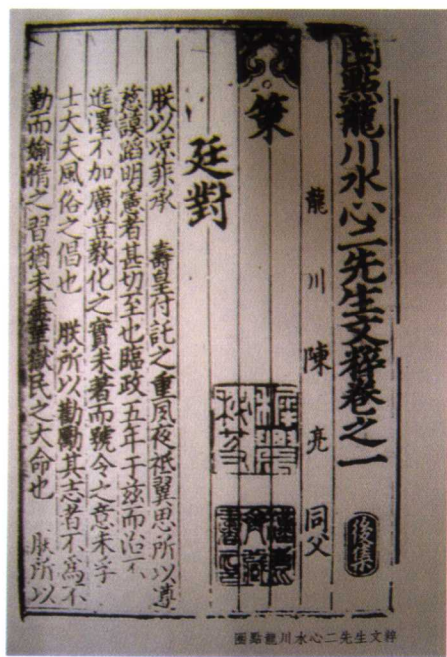 圈點龍川水心二先生文粹卷之一
後集
龍川陳亮同父
策
廷對
朕以涼菲承 壽皇付託之重夙夜祗翼思所以遵
慈謨蹈明憲者甚切至也臨政五年于茲而治不
進澤不加廣豈教化之實未著而號令之意未孚
士大夫風俗之倡也 朕所以勸勵其志者不為不
勤而婾惰之習猶未盡革獄民之大命也 朕所以
圈點龍川水心二先生文粹